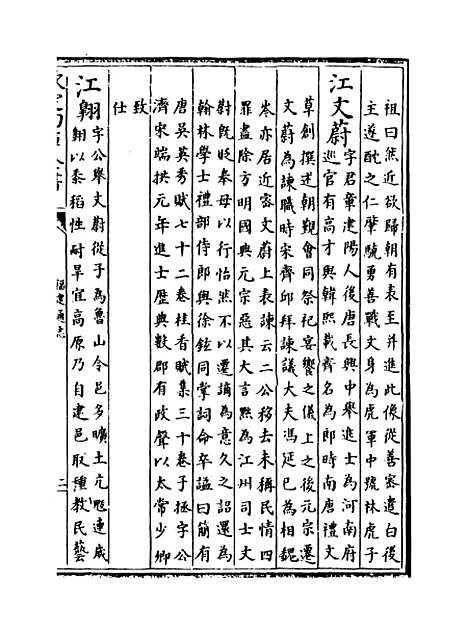 祖曰然近欲歸朝有表至并進此像從善密遣白後
主遂酖之仁肇驍勇善戰文身為虎軍中號林虎子
江文蔚字君章建陽人後唐長興中舉進士為河南府
巡官有高才與韓熙載齊名為郎時南唐禮文
草創撰述朝覲會同祭祀宴饗之儀上之後元宗遷
文蔚為諫職時宋齊邱拜諫議大夫馮延巳為相魏
岑亦居近密文蔚上表諫云二公移去未稱民情四
罪盡除方明國典元宗惡其大言黜為江州司士文
蔚既貶奉母以行怡然不以遷謫為意久之詔還為
翰林學士禮部侍郎與徐鉉同掌詞命卒諡曰簡有
唐吳英秀賦七十二卷桂香賦集三十卷子拯字公
濟宋端拱元年進士歷典數郡有政聲以太常少卿
致仕
江翱字公舉文蔚從子為魯山令邑多曠土亢𭧂連歲
翱以黍稻性耐旱宜高原乃自建邑取種教民藝
福建通志
二